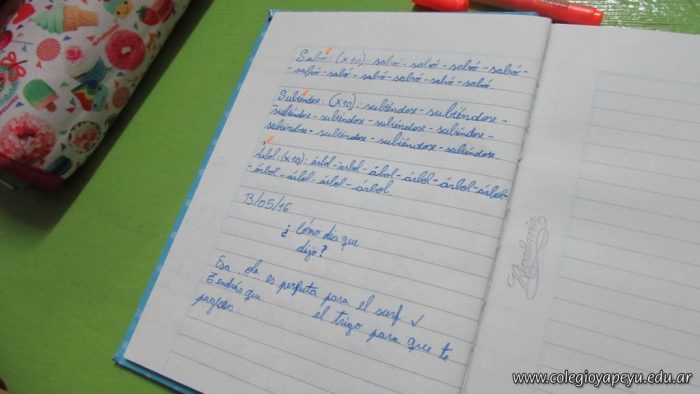 Salvó: (x10): salvó - salvó - salvó - salvó -
- salvó - salvó - salvó - salvó - salvó - salvó.
Subiéndose: (x10): subiéndose - subiéndose -
subiéndose - subiéndose - subiéndose - subiéndose -
subiéndose - subiéndose - subiéndose - subiéndose.
Árbol (x10): árbol - árbol - árbol - árbol - árbol - árbol -
- árbol - árbol - árbol - árbol.
13/05/16
¿Cómo dia que
dijo?
Esa ola es perfecta para el surf ✓
Tendrás que el trigo para que te
paguen
Rivadavia
www.colegioyapeyu.edu.ar